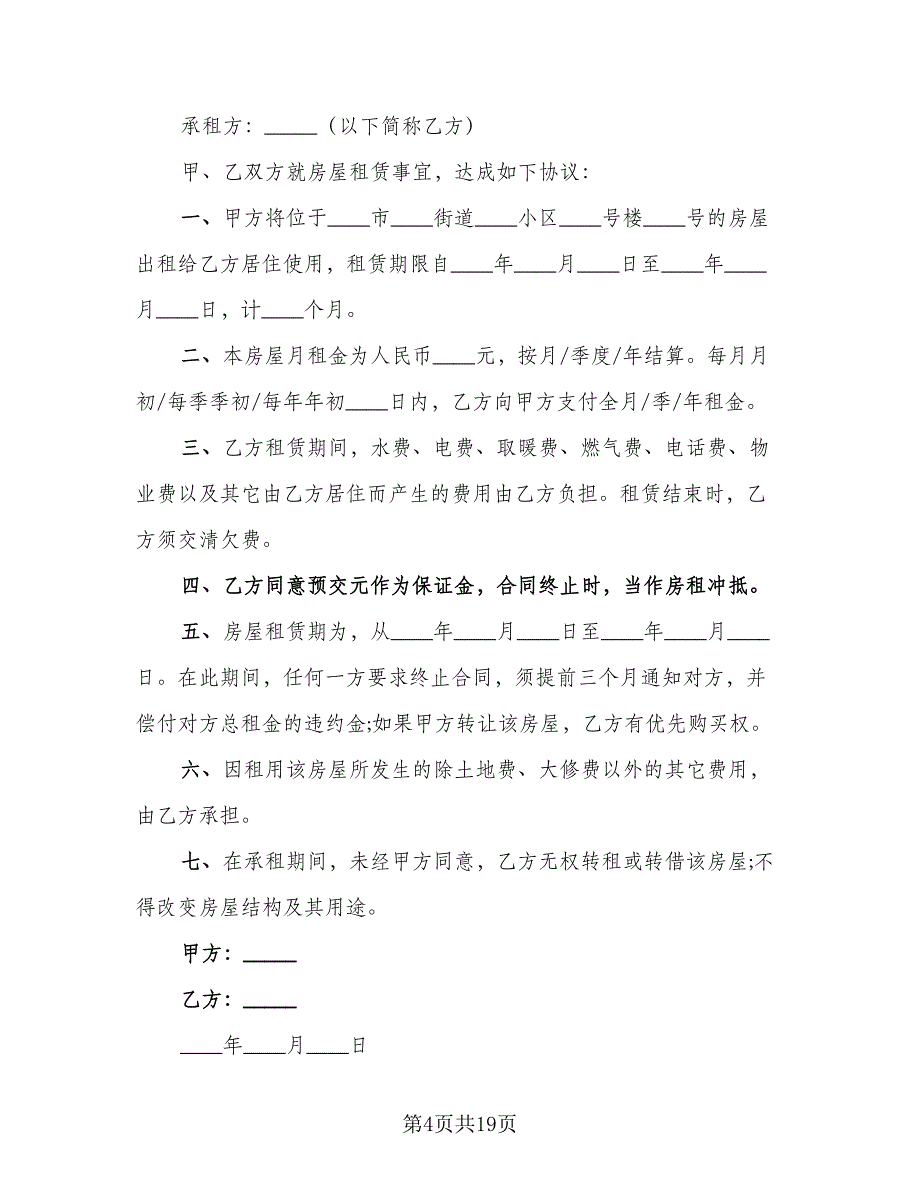 承租方：_____（以下简称乙方）
甲、乙双方就房屋租赁事宜，达成如下协议：
一、甲方将位于____市____街道____小区____号楼____号的房屋
出租给乙方居住使用，租赁期限自____年____月____日至____年____
月____日，计____个月。
二、本房屋月租金为人民币____元，按月/季度/年结算。每月月
初/每季季初/每年年初____日内，乙方向甲方支付全月/季/年租金。
三、乙方租赁期间，水费、电费、取暖费、燃气费、电话费、物
业费以及其它由乙方居住而产生的费用由乙方负担。租赁结束时，乙
方须交清欠费。
四、乙方同意预交元作为保证金，合同终止时，当作房租冲抵。
五、房屋租赁期为，从____年____月____日至____年____月____
日。在此期间，任何一方要求终止合同，须提前三个月通知对方，并
偿付对方总租金的违约金;如果甲方转让该房屋，乙方有优先购买权。
六、因租用该房屋所发生的除土地费、大修费以外的其它费用，
由乙方承担。
七、在承租期间，未经甲方同意，乙方无权转租或转借该房屋;不
得改变房屋结构及其用途。
甲方：_____
乙方：_____
____年____月____日
第4页共19页